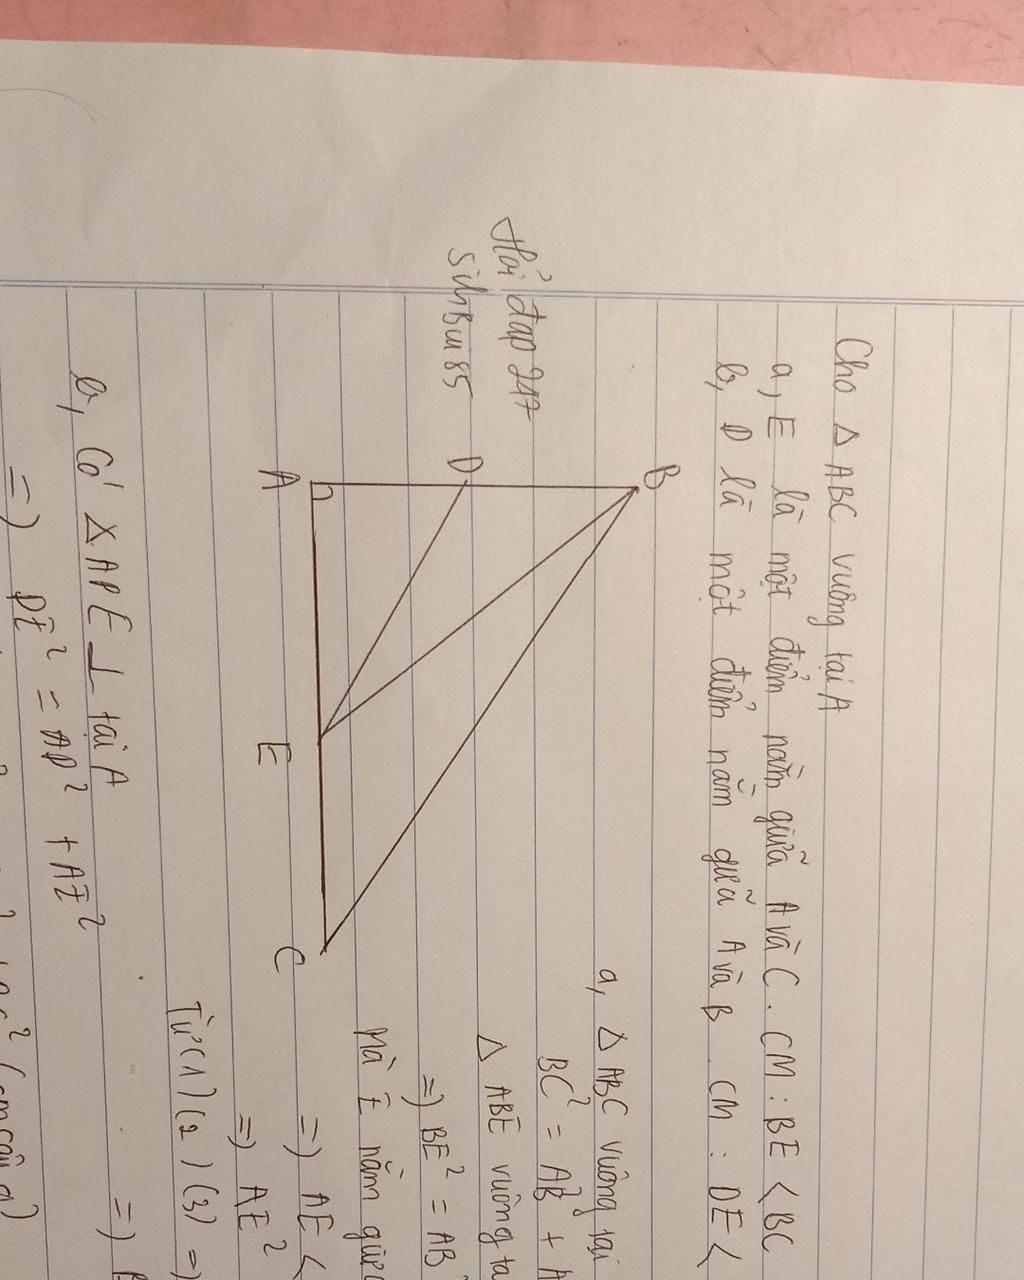 Cho Δ ABC vuông tại A
a, E là một điểm nằm giữa A và C. CM : BE < BC
b, D là một điểm nằm giữa A và B . CM : DE <
B
D
A
E
C
Hỏi đap 247
a, Δ ABC vuông tại
BC² = AB² + A
Δ ABE vuông tạ
=) BE² = AB
Mà E nằm giữa
=) AE <
=) AE²
Từ (1) (2) (3) =)
=) B
b, Có ΔADE ⊥ tại A
=) DE² = AD² + AE²
(cm câu a)